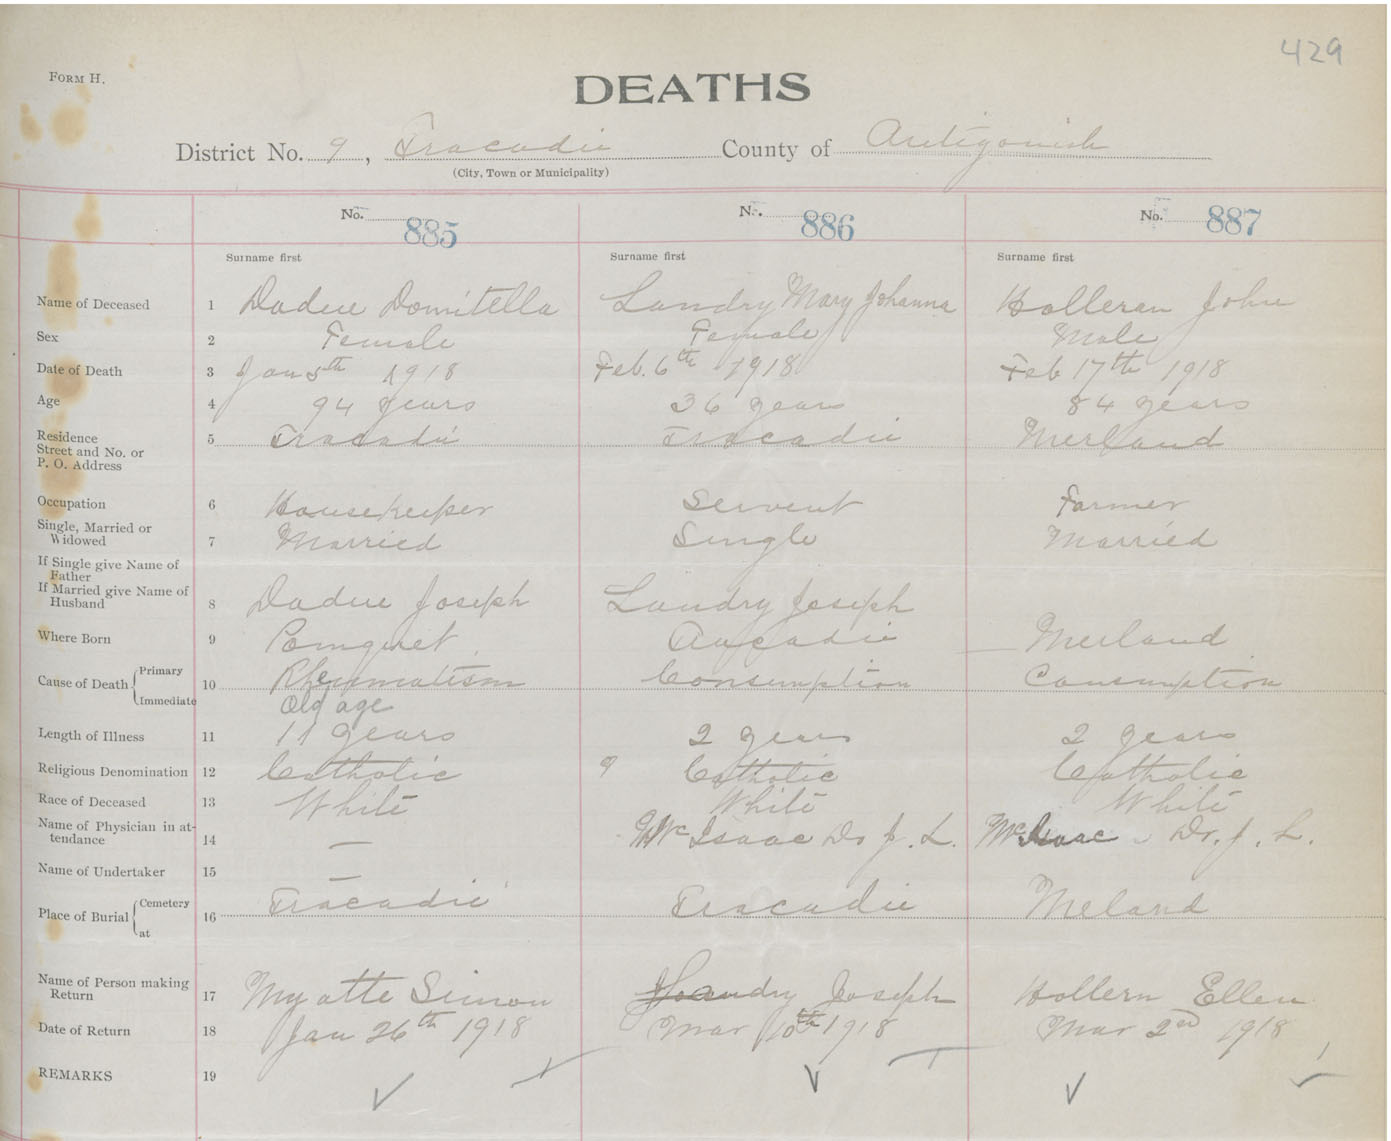 429
FORM H.
DEATHS
District No. 9, Tracadie County of Antigonish
(City, Town or Municipality)
No. 885 No. 886 No. 887
Surname first Surname first Surname first
Name of Deceased 1 Domitella Landry Mary Johanna Holleran John
Sex 2 Female Female Male
Date of Death 3 Jan 5th 1918 Feb. 6th 1918 Feb 17th 1918
Age 4 94 years 36 years 84 years
Residence
Street and No. or 5 Tracadie Tracadie Merland
P. O. Address
Occupation 6 Housekeeper Servent Farmer
Single, Married or
Widowed 7 Married Single Married
If Single give Name of
Father
If Married give Name of
Husband 8 Joseph Landry Joseph
Where Born 9 Pomquet Merland
Cause of Death { Primary
10 Rheumatism Consumption Consumption
Immediate Old age
Length of Illness 11 11 years 2 years 2 years
Religious Denomination 12 Catholic 9 Catholic Catholic
Race of Deceased 13 White White White
Name of Physician in at-
tendance 14 — McIsaac Dr J. L. McIsaac Dr. J. L.
Name of Undertaker 15 —
Place of Burial { Cemetery
16 Tracadie Tracadie Meland
at
Name of Person making
Return 17 Myatte Simon Landry Joseph Hollern Ellen
Date of Return 18 Jan 26th 1918 Mar 10th 1918 Mar 2nd 1918
REMARKS 19